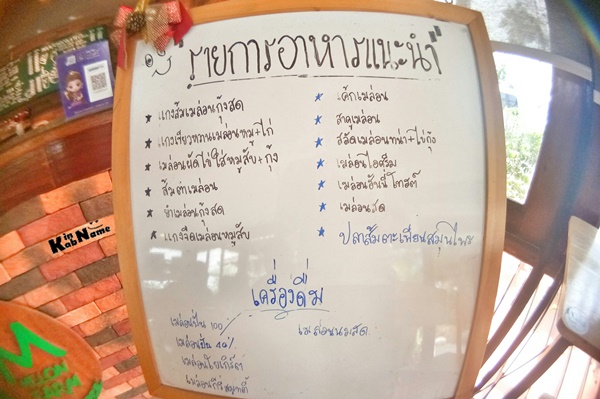 รายการอาหารแนะนำ
★ แกงส้มเมล่อนกุ้งสด
★ แกงเขียวหวานเมล่อนหมู+ไก่
★ เมล่อนผัดไข่ใส่หมูสับ+กุ้ง
★ ส้มตำเมล่อน
★ ยำเมล่อนกุ้งสด
★ แกงจืดเมล่อนหมูสับ
★ เค้กเมล่อน
★ สาคูเมล่อน
★ สลัดเมล่อนทูน่า+ไข่กุ้ง
★ เมล่อนไอศครีม
★ เมล่อนฮันนี่โทสต์
★ เมล่อนสด
★ ปลาส้ม
เครื่องดื่ม
เมล่อนปั่น 100%
เมล่อนปั่น 40%
เมล่อนโยเกิร์ต
เมล่อนสมูทตี้
เมล่อนนมสด
Kin
Kab
Name
MELON
FARM